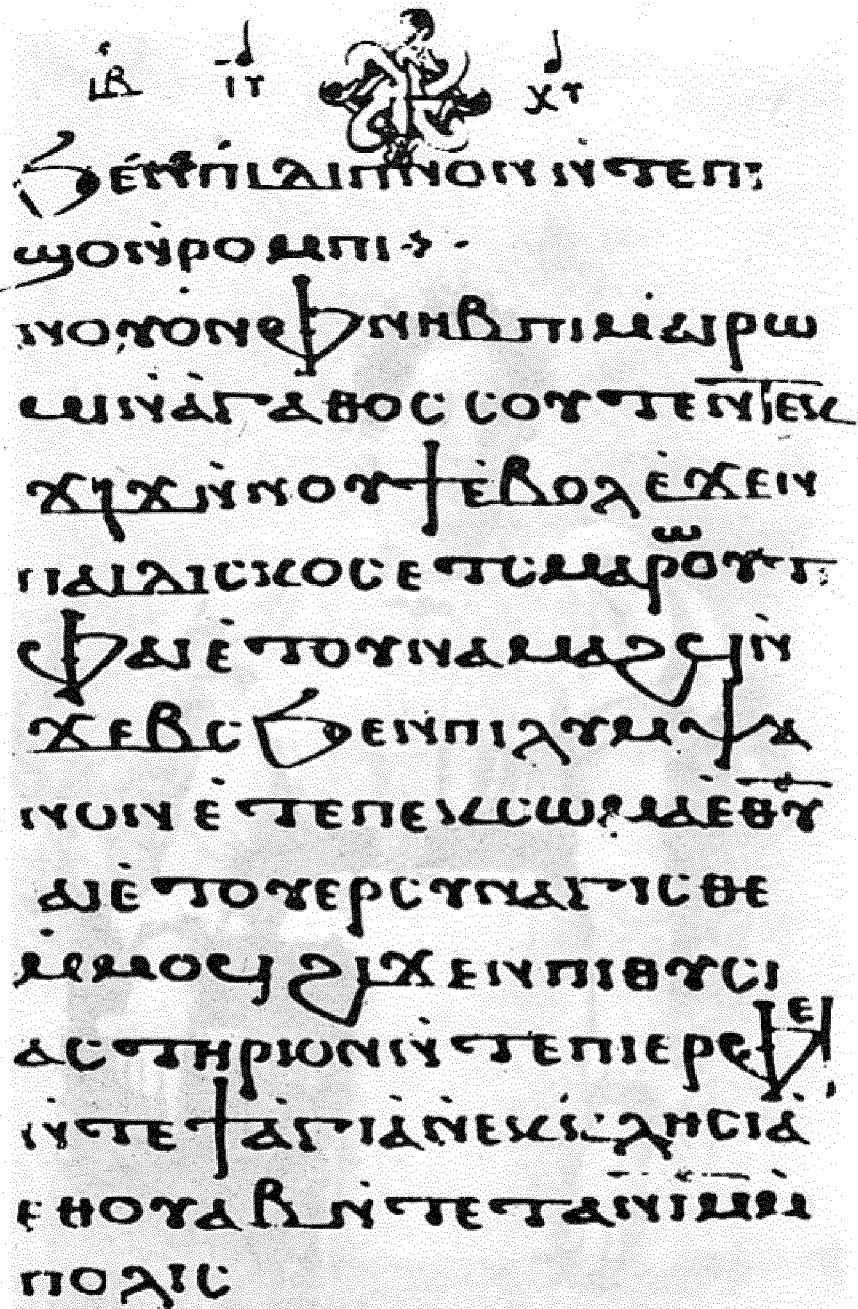 ⲓⲃ ⲓⲩ ⲭⲩ
ϧⲉⲛⲡⲓⲇⲓⲡⲛⲟⲛⲛ̇ⲧⲉⲡⲓ
ϣⲟⲛ̇ⲣⲟⲙⲡⲓ
ⲛⲟⲩⲟⲛⲉⲫⲛⲏⲃⲡⲓⲙⲁⲓⲣⲱ
ⲙⲓⲛ̇ⲁ̇ⲅⲁⲑⲟⲥ ⲥⲟⲩⲧⲉⲛⲧⲉⲕ
ϫⲓϫⲛ̇ⲛⲟⲩϯⲉ̇ⲃⲟⲗⲉ̇ϫⲉⲛ
ⲡⲁⲓⲇⲓⲥⲕⲟⲥⲉⲧⲥⲙⲁⲣⲱⲟⲩⲧ:
ⲫⲁⲓⲉ̇ⲧⲟⲩⲛⲁⲙⲁϩϥⲛ̇
ϫⲉⲃⲥϧⲉⲛⲡⲓⲗⲩⲙⲯⲁ
ⲛⲟⲛⲉ̇ⲧⲉⲡⲉⲕⲥⲱⲙⲁⲉ̅ⲑ̅ⲩ̅
ⲁⲓⲉ̇ⲧⲟⲩⲉⲣⲥⲩⲛⲁⲅⲓⲥⲑⲉ
ⲙ̇ⲙⲟϥϩⲓϫⲉⲛⲡⲓⲑⲩⲥⲓ
ⲁⲥⲧⲏⲣⲓⲟⲛⲛ̇ⲧⲉⲡⲓⲉⲣⲫⲉⲓ
ⲛ̇ⲧⲉϯⲁ̇ⲅⲓⲁ̇ⲛⲉⲕⲕⲗⲏⲥⲓⲁ̇
ⲉⲑⲟⲩⲁⲃⲛ̇ⲧⲉⲧⲁⲛⲓⲙⲙ
ⲡⲟⲗⲓⲥ